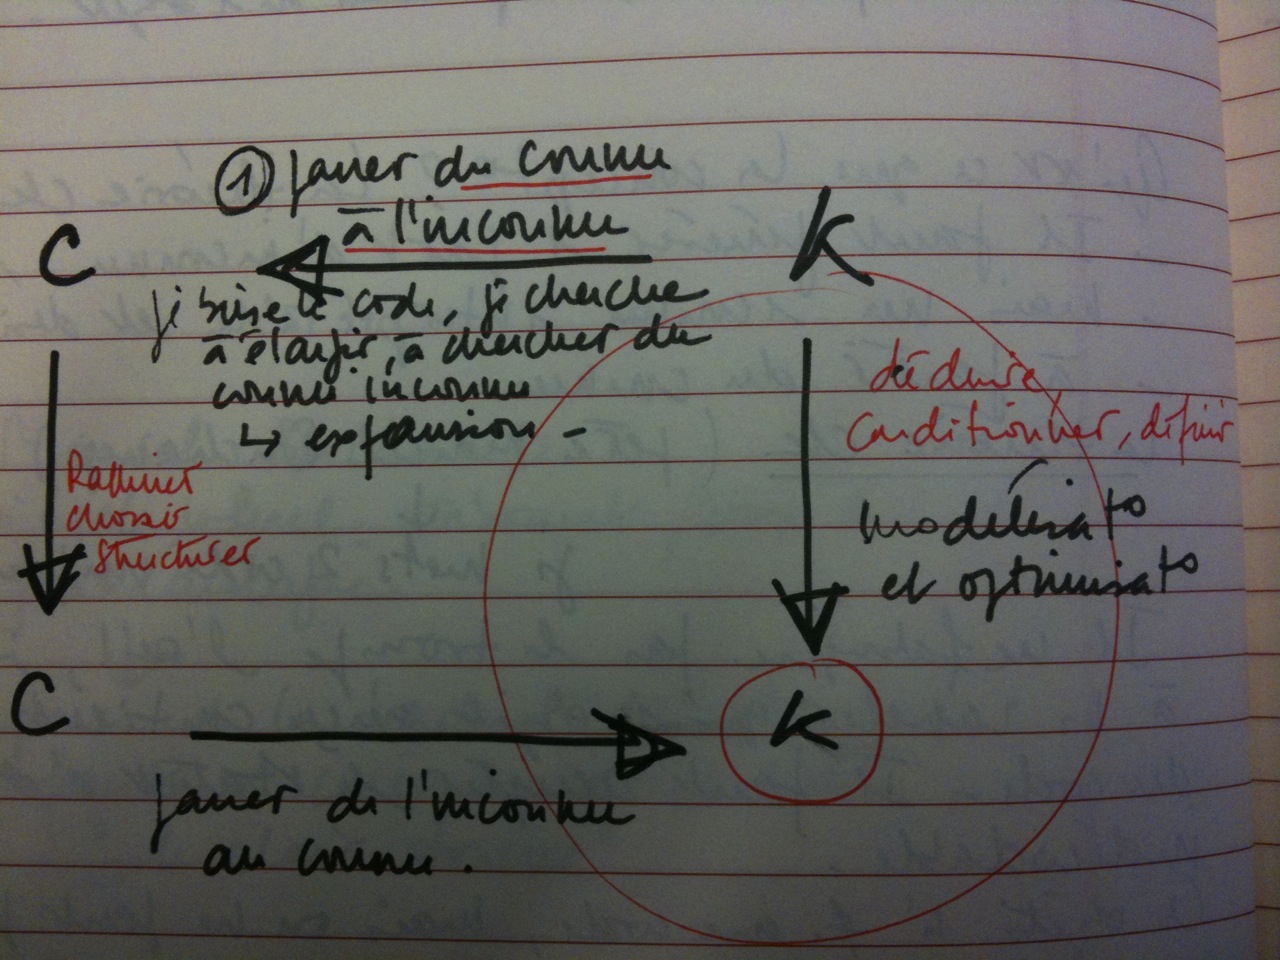 ① passer du connu
à l'inconnu
C
K
je brise le code, je cherche
à élargir, à chercher du
connu inconnu
↳ expansion -
déduire,
conditionner, définir
modélisat°
et optimisat°
Raffiner
choisir
structurer
C
K
passer de l'inconnu
au connu.